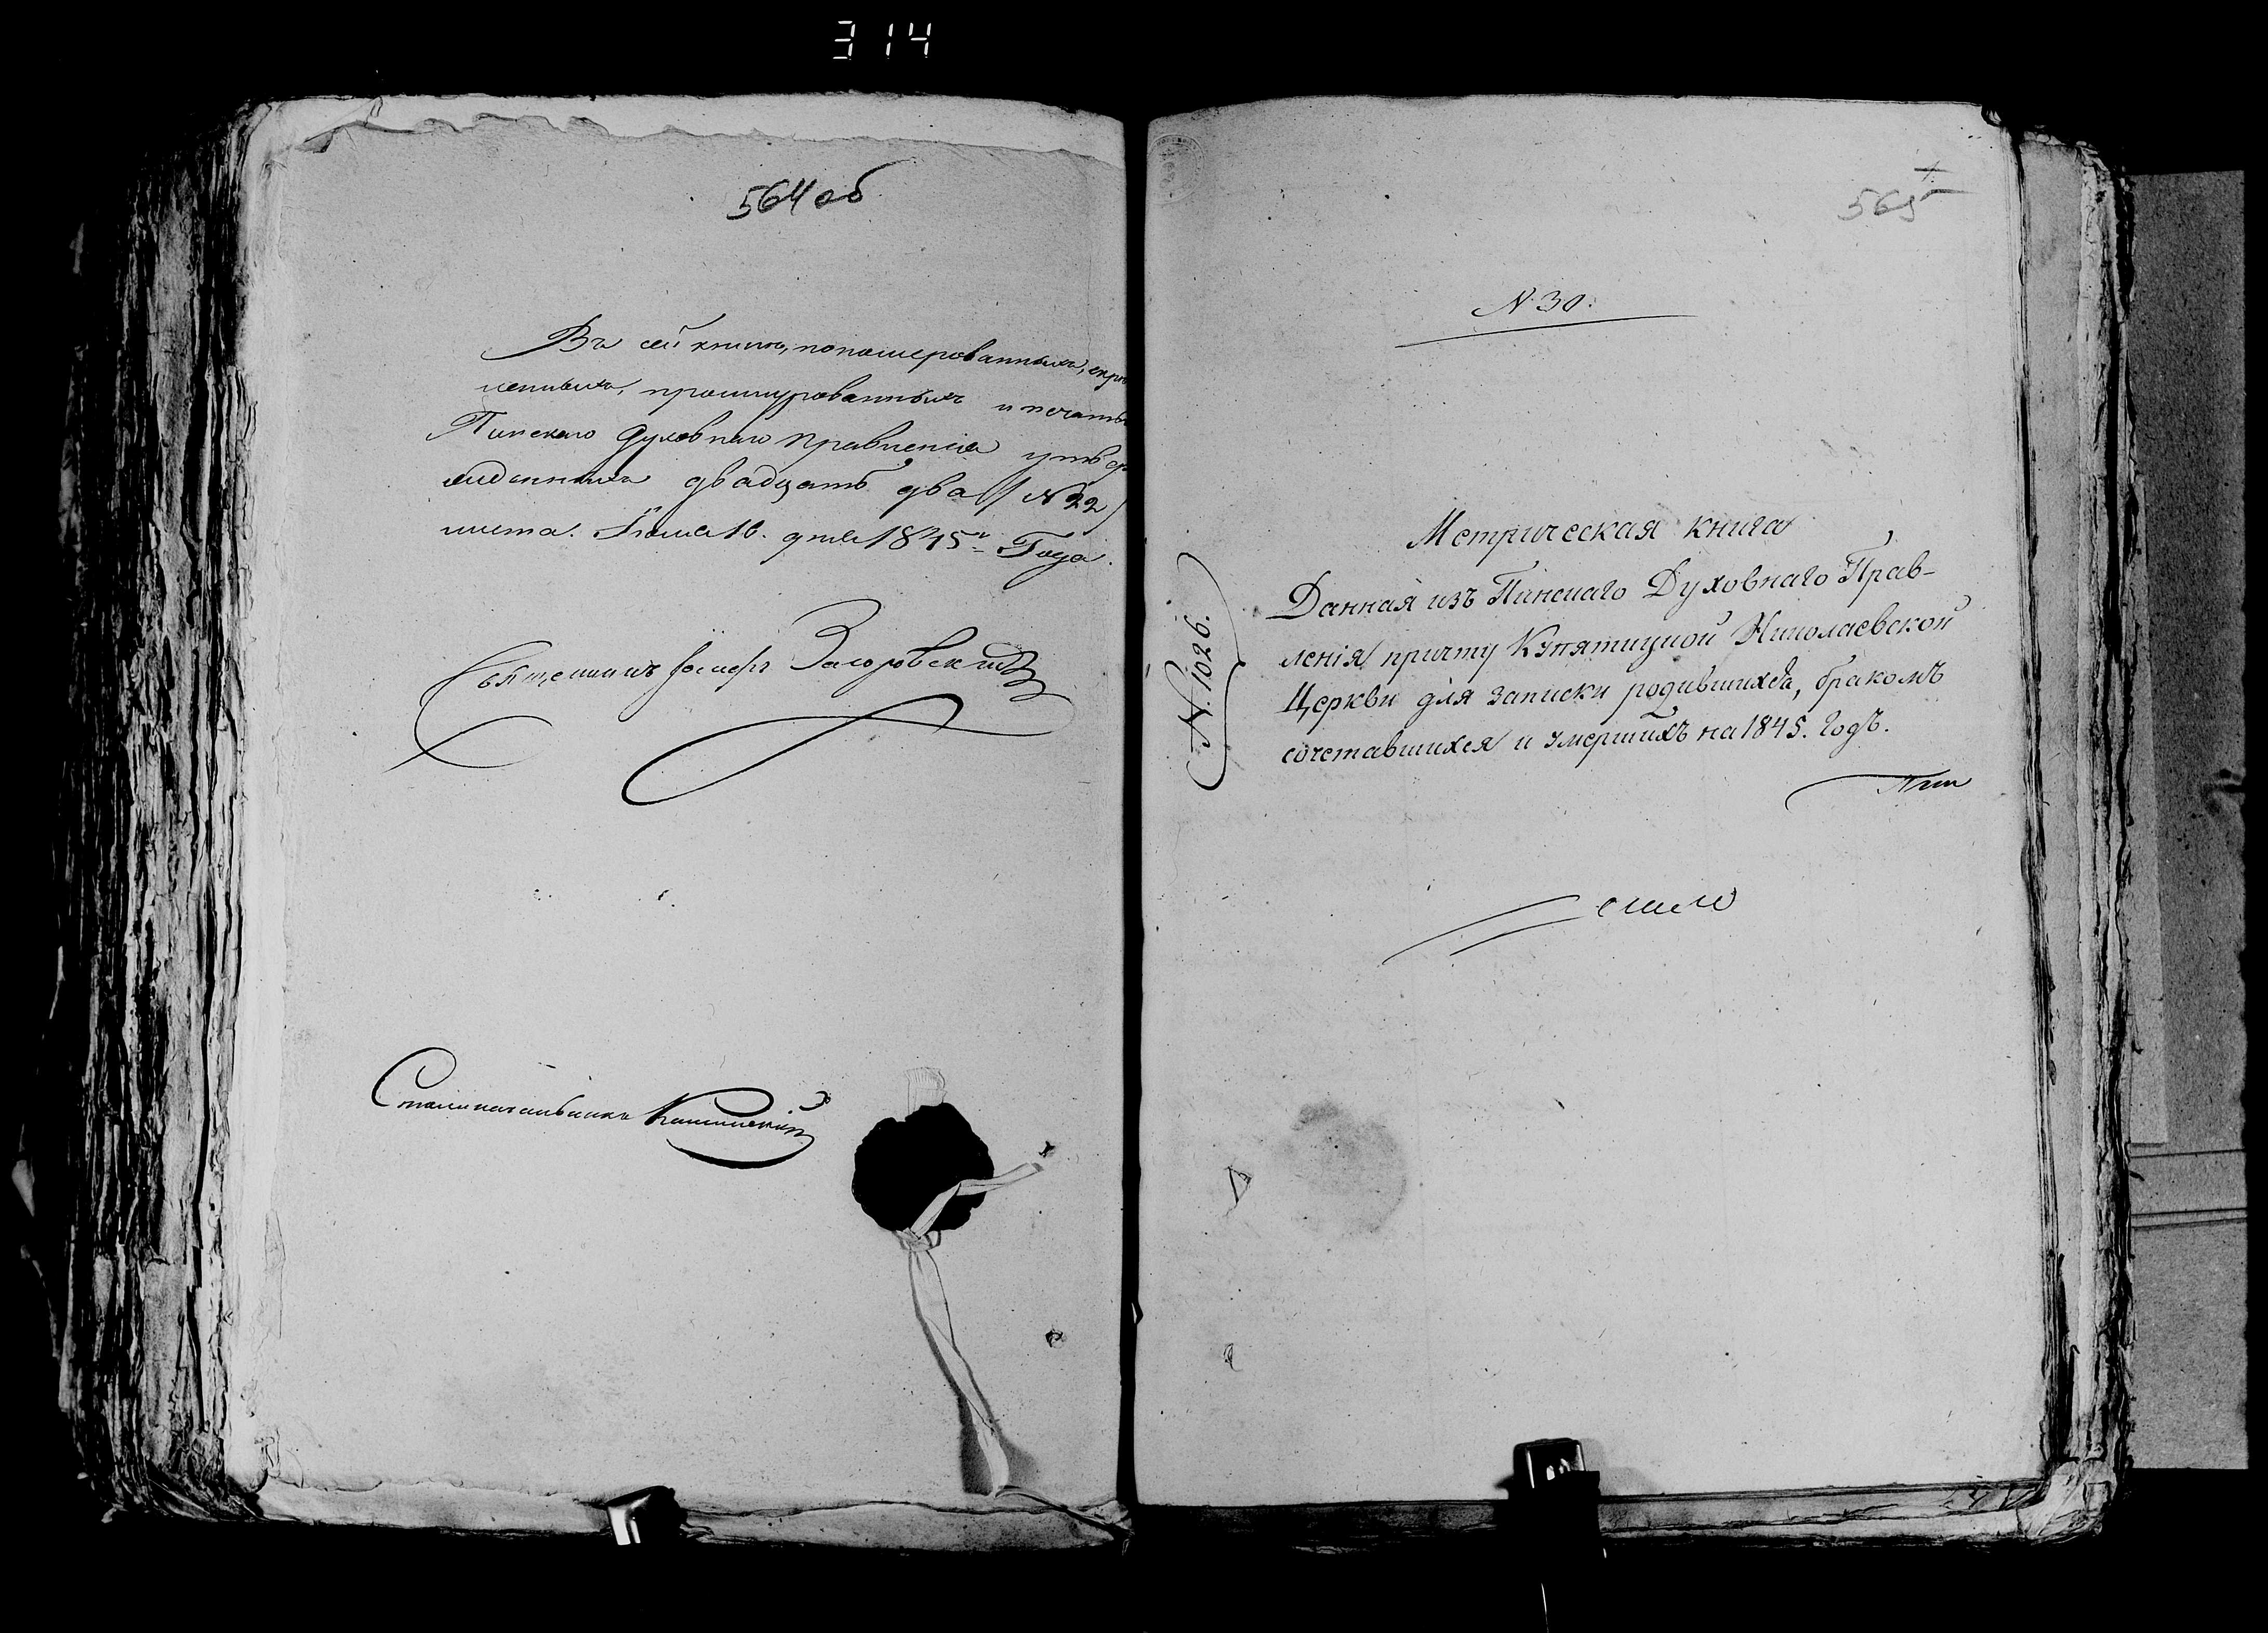 314
564 об
Въ сей книге, пономерованныхъ, скре
пленныхъ, прошнурованныхъ и печатью
Пинскаго Духовнаго Правленія утвер
жденныхъ двадцать два (N 22)
листа. Іюня 16. дня 1845 Года.
Священникъ Іосифъ
Столоначальникъ
565
N. 30.
N. 1026.
Метрическая книга
Данная изъ Пинскаго Духовнаго Прав-
ленія причту Купятицкой Николаевской
Церкви для записки родившихся, бракомъ
сочетавшихся и умершихъ на 1845. годъ.